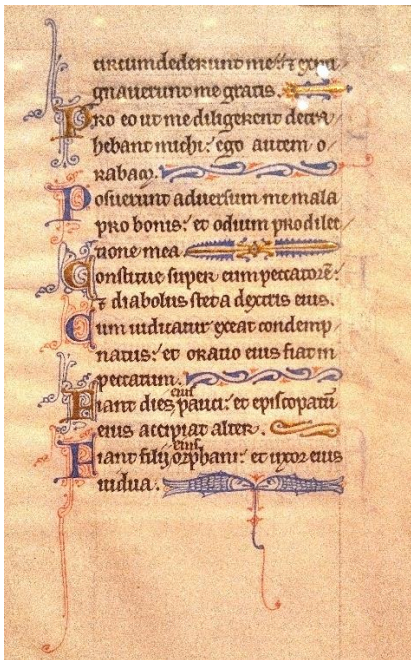 circumdederunt me: ⁊ expu
gnaverunt me gratis.
Pro eo ut me diligerent detra
hebant michi: ego autem o
rabam.
Posuerunt adversum me mala
pro bonis: et odium pro dilec
tione mea.
Constitue super eum peccatorē:
⁊ diabolus stet a dextris eius.
Cum iudicatur exeat condemp
natus: et oratio eius fiat in
peccatum.
Fiant dies eius pauci: et episcopatū
eius accipiat alter.
Fiant filii eius orphani: et uxor eius
vidua.